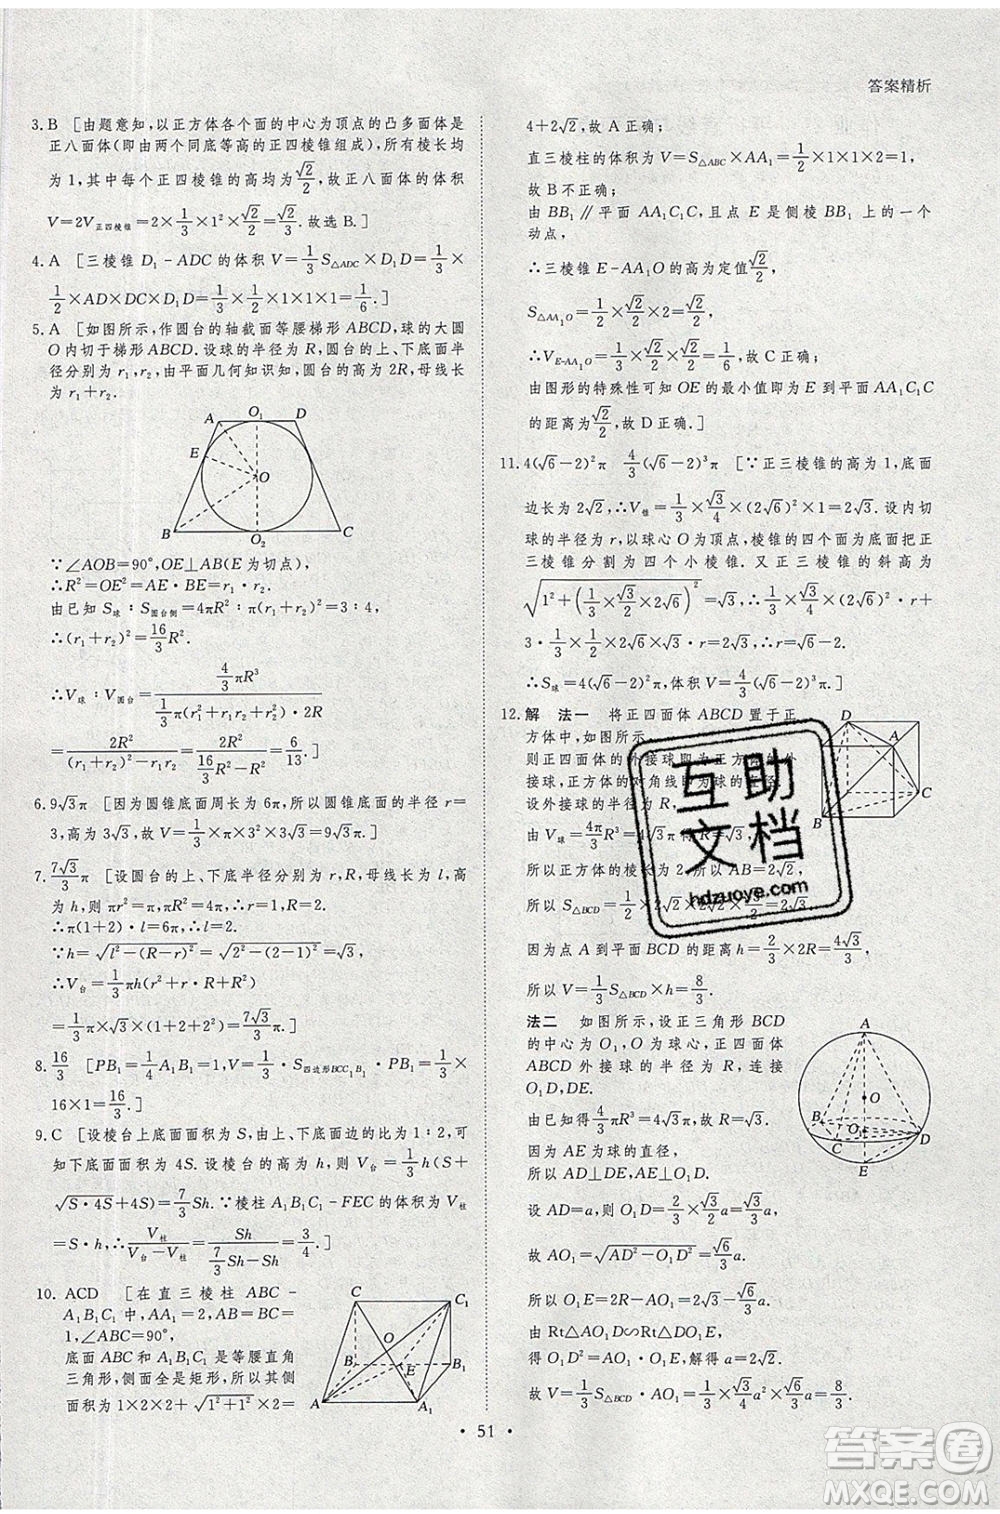 答案精析
3.B [由题意知,以正方体各个面的中心为顶点的凸多面体是
正八面体(即由两个同底等高的正四棱锥组成),所有棱长均
为1,其中每个正四棱锥的高均为√2/2,故正八面体的体积
V=2V正四棱锥=2×1/3×1²×√2/2=√2/3.故选B.]
4.A [三棱锥D₁-ADC的体积V=1/3S△ADC×D₁D=1/3×
1/2×AD×DC×D₁D=1/3×1/2×1×1×1=1/6.]
5.A [如图所示,作圆台的轴截面等腰梯形ABCD,球的大圆
O内切于梯形ABCD.设球的半径为R,圆台的上、下底面半
径分别为r₁,r₂.由平面几何知识知,圆台的高为2R,母线长
为r₁+r₂.
A O₁ D
E
O
B O₂ C
∵∠AOB=90°,OE⊥AB(E为切点),
∴R²=OE²=AE·BE=r₁·r₂.
由已知S球∶S圆台侧=4πR²∶π(r₁+r₂)²=3∶4,
∴(r₁+r₂)²=16/3R².
∴V球∶V圆台=(4/3πR³)/(1/3π(r₁²+r₁r₂+r₂²)·2R)
=2R²/((r₁+r₂)²-r₁r₂)=2R²/(16/3R²-R²)=6/13.]
6.9√3π [因为圆锥底面周长为6π,所以圆锥底面的半径r=
3,高为3√3,体积V=1/3×π×3²×3√3=9√3π.]
7.7√3/3π [设圆台的上、下底面半径分别为r,R,母线长为l,高
为h,则πr²=π,πR²=4π,∴r=1,R=2.
∴π(1+2)·l=6π,∴l=2.
∵h=√(l²-(R-r)²)=√(2²-(2-1)²)=√3,
∴V台=1/3πh(r²+r·R+R²)
=1/3π×√3×(1+2+2²)=7√3/3π.]
8.16/3 [PB₁=1/4A₁B₁=1,V=1/3·S四边形BCC₁B₁·PB₁=1/3×
16×1=16/3.]
9.C [设棱台上底面面积为S,由上、下底面边的比为1∶2,可
知下底面面积为4S.设棱台的高为h,则V台=1/3(S+
√(S·4S)+4S)=7/3Sh.∵棱柱A₁B₁C₁-FEC的体积为V柱
=S·h,∴V柱/(V台-V柱)=Sh/(7/3Sh-Sh)=3/4.]
10. ACD [在直三棱柱ABC-
A₁B₁C₁中,AA₁=2,AB=BC=
1,∠ABC=90°,
底面ABC和A₁B₁C₁是等腰直角
三角形,侧面全是矩形,所以其侧
面积为1×2×2+√(1²+1²)×2=
C C₁
O
B E B₁
A A₁
4+2√2,故A正确;
直三棱柱的体积为V=S△ABC×AA₁=1/2×1×1×2=1,
故B不正确;
由BB₁∥平面AA₁C₁C,且点E是侧棱BB₁上的一个
动点,
∴三棱锥E-AA₁O的高为定值√2/2,
S△AA₁O=1/2×√2/2×2=√2/2,
∴V E-AA₁O=1/3×√2/2×√2/2=1/6,故C正确;
由图形的特殊性可知OE的最小值即为E到平面AA₁C₁C
的距离,为√2/2,故D正确.]
11.4(√6-2)²π 4/3(√6-2)³π [∵正三棱锥的高为1,底面
边长为2√6,∴V锥=1/3×√3/4×(2√6)²×1=2√3.设内切
球的半径为r,以球心O为顶点,棱锥的四个面为底面把正
三棱锥分割为四个小棱锥.又正三棱锥的斜高为
√(1²+(1/3×√3/2×2√6)²)=√3,∴1/3×√3/4×(2√6)²·r+
3·1/3×1/2×2√6×√3·r=2√3,∴r=√6-2.
∴S球=4(√6-2)²π,V球=4/3(√6-2)³π.]
12.解 法一 将正四面体ABCD置于正
方体中,如图所示.
则正四面体的外接球即为正方体的外
接球,正方体的对角线即为球的直径.
设外接球的半径为R,
由V球=4π/3R³=4√3π,得R=√3.
所以正方体的棱长为2,所以AB=2√2,
所以S△BCD=
因为点A到平面BCD的距离h=2/3×2R=4√3/3,
所以V=1/3S△BCD×h=8/3.
D
A
C
B
法二 如图所示,设正三角形BCD
的中心为O₁,O为球心,正四面体
ABCD外接球的半径为R,连接
O₁D,DE.
由已知得4/3πR³=4√3π,故R=√3.
因为AE为球的直径,
所以AD⊥DE,AE⊥O₁D.
设AD=a,所以O₁D=2/3×√3/2a=√3/3a,
故AO₁=√(AD²-O₁D²)=√6/3a.
所以O₁E=2R-AO₁=2√3-√6/3a,
由Rt△AO₁D∽Rt△DO₁E,
得O₁D²=AO₁·O₁E,解得a=2√2.
故V=1/3S△BCD·AO₁=1/3×√3/4a²×√6/3a=8/3.
A
O
B O₁ D
C
E
• 51 •
互助
文档
hdzuoye.com
答案圈
MXQE.COM